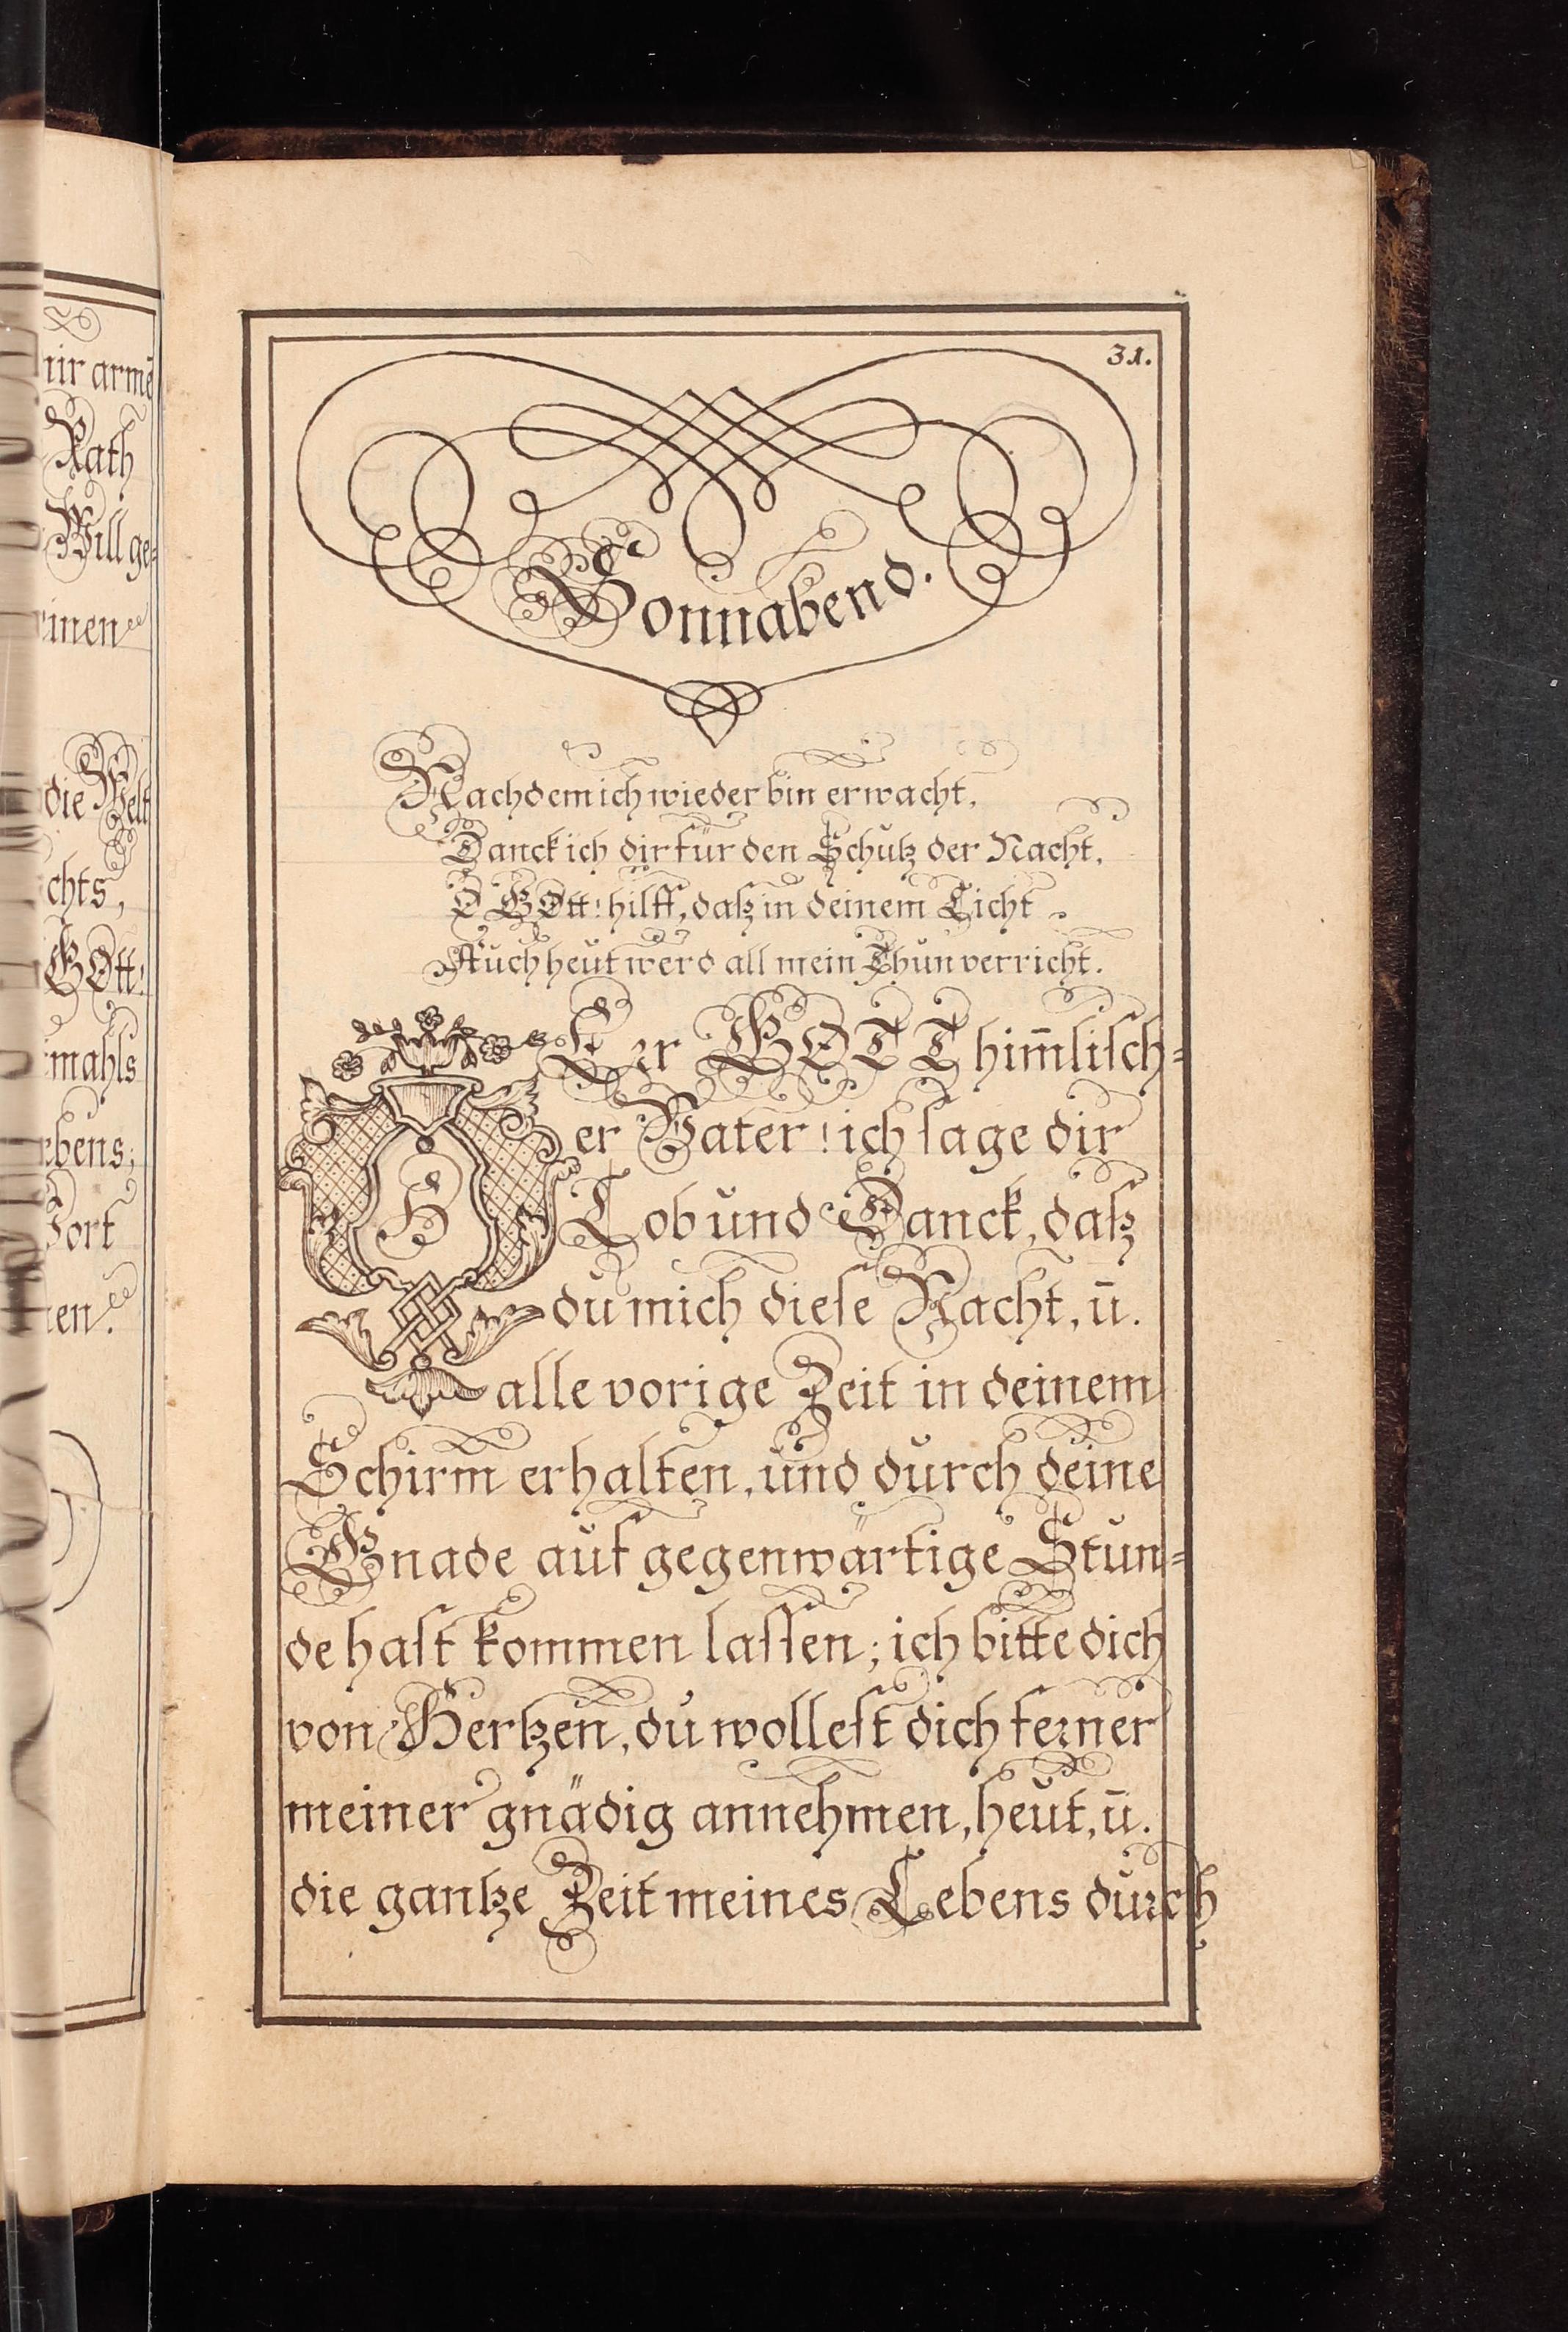 ir armē
Rath
Will ge=
inen
die Welt
chts,
GOtt!
mahls
ebens;
ort
en.
31.
Sonnabend.
Nachdem ich wieder bin erwacht,
Danck ich dir für den Schutz der Nacht,
O GOtt! hilff, daß in deinem Licht
Auch heut werd all mein Thun verricht.
HErr GOTT him̄lisch=
er Vater! ich sage dir
Lob und Danck, daß
du mich diese Nacht, ū.
alle vorige Zeit in deinem
Schirm erhalten, und durch deine
Gnade auf gegenwärtige Stun=
de hast kommen lassen; ich bitte dich
von Hertzen, du wollest dich ferner
meiner gnädig annehmen, heut, ū.
die gantze Zeit meines Lebens durch